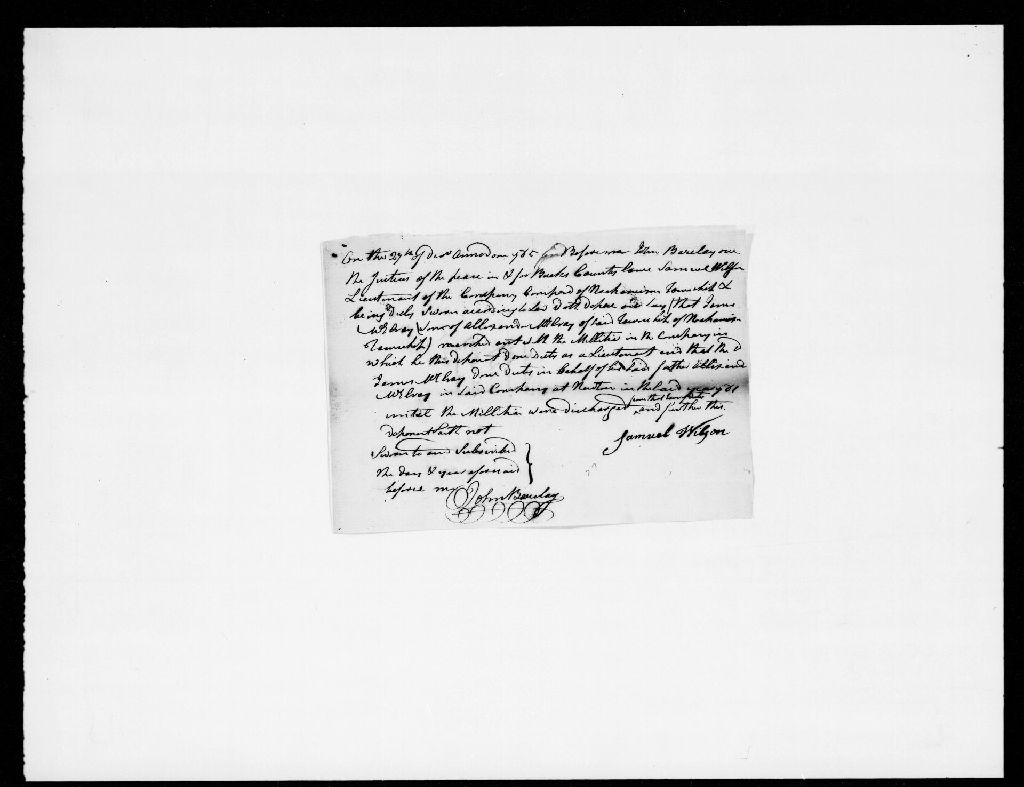 On the 29th of Decr Annodom 1785 Before me John Barclay one
the Justices of the peace in & for Bucks County Came Samuel Wilson
Lieutenant of the Company Composed of Nockamixon Township &
being Duly Sworn according to law Doth Depose and Say (that James
McElroy Son of Allexander McElroy of Said Township of Nockamixon
Township) marched out with the Millitia in the Company in
which he this Deponent Done Duty as a Lieutenant and that the Sd
James McElroy Done Duty in behalf of his Said father Allexander
McElroy in Said Company at Newton in the Said year 1781
untill the Millitia were discharged and further this
Deponent Saith not
Samuel Wilson
Sworn to and Subscribed
the day & year aforesaid
before me
John Barclay